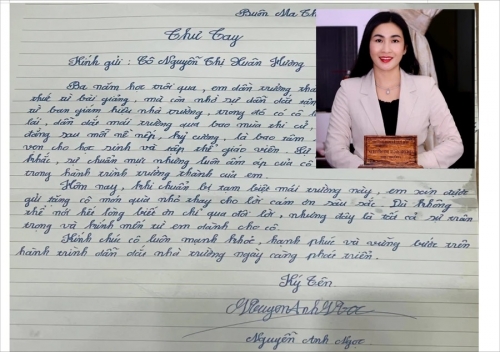 Buôn Ma Th
Thư Tay
Kính gửi : Cô Nguyễn Thị Xuân Hương
Ba năm học trôi qua, em dần trưởng thàn
thức từ bài giảng, mà còn nhờ sự dẫn dắt tận
từ ban giám hiệu nhà trường, trong đó có cô
lái, dẫn dắt mái trường qua bao mùa thi cử,
đằng sau mỗi nề nếp, kỷ cương, là bao năm
vọn cho học sinh và tập thể giáo viên. Sự
khắc, sự chuẩn mực nhưng luôn ấm áp của cô
trong hành trình trưởng thành của em.
Hôm nay, khi chuẩn bị tạm biệt mái trường này, em xin được
gửi tặng cô món quà nhỏ thay cho lời cảm ơn sâu sắc. Dù không
thể nói hết lòng biết ơn chỉ qua đôi lời, nhưng đây là tất cả sự trân
trọng và kính mến từ em dành cho cô.
Kính chúc cô luôn mạnh khoẻ, hạnh phúc và vững bước trên
hành trình dẫn dắt nhà trường ngày càng phát triển.
Ký Tên
NguyenAnhNgoc
Nguyễn Anh Ngọc